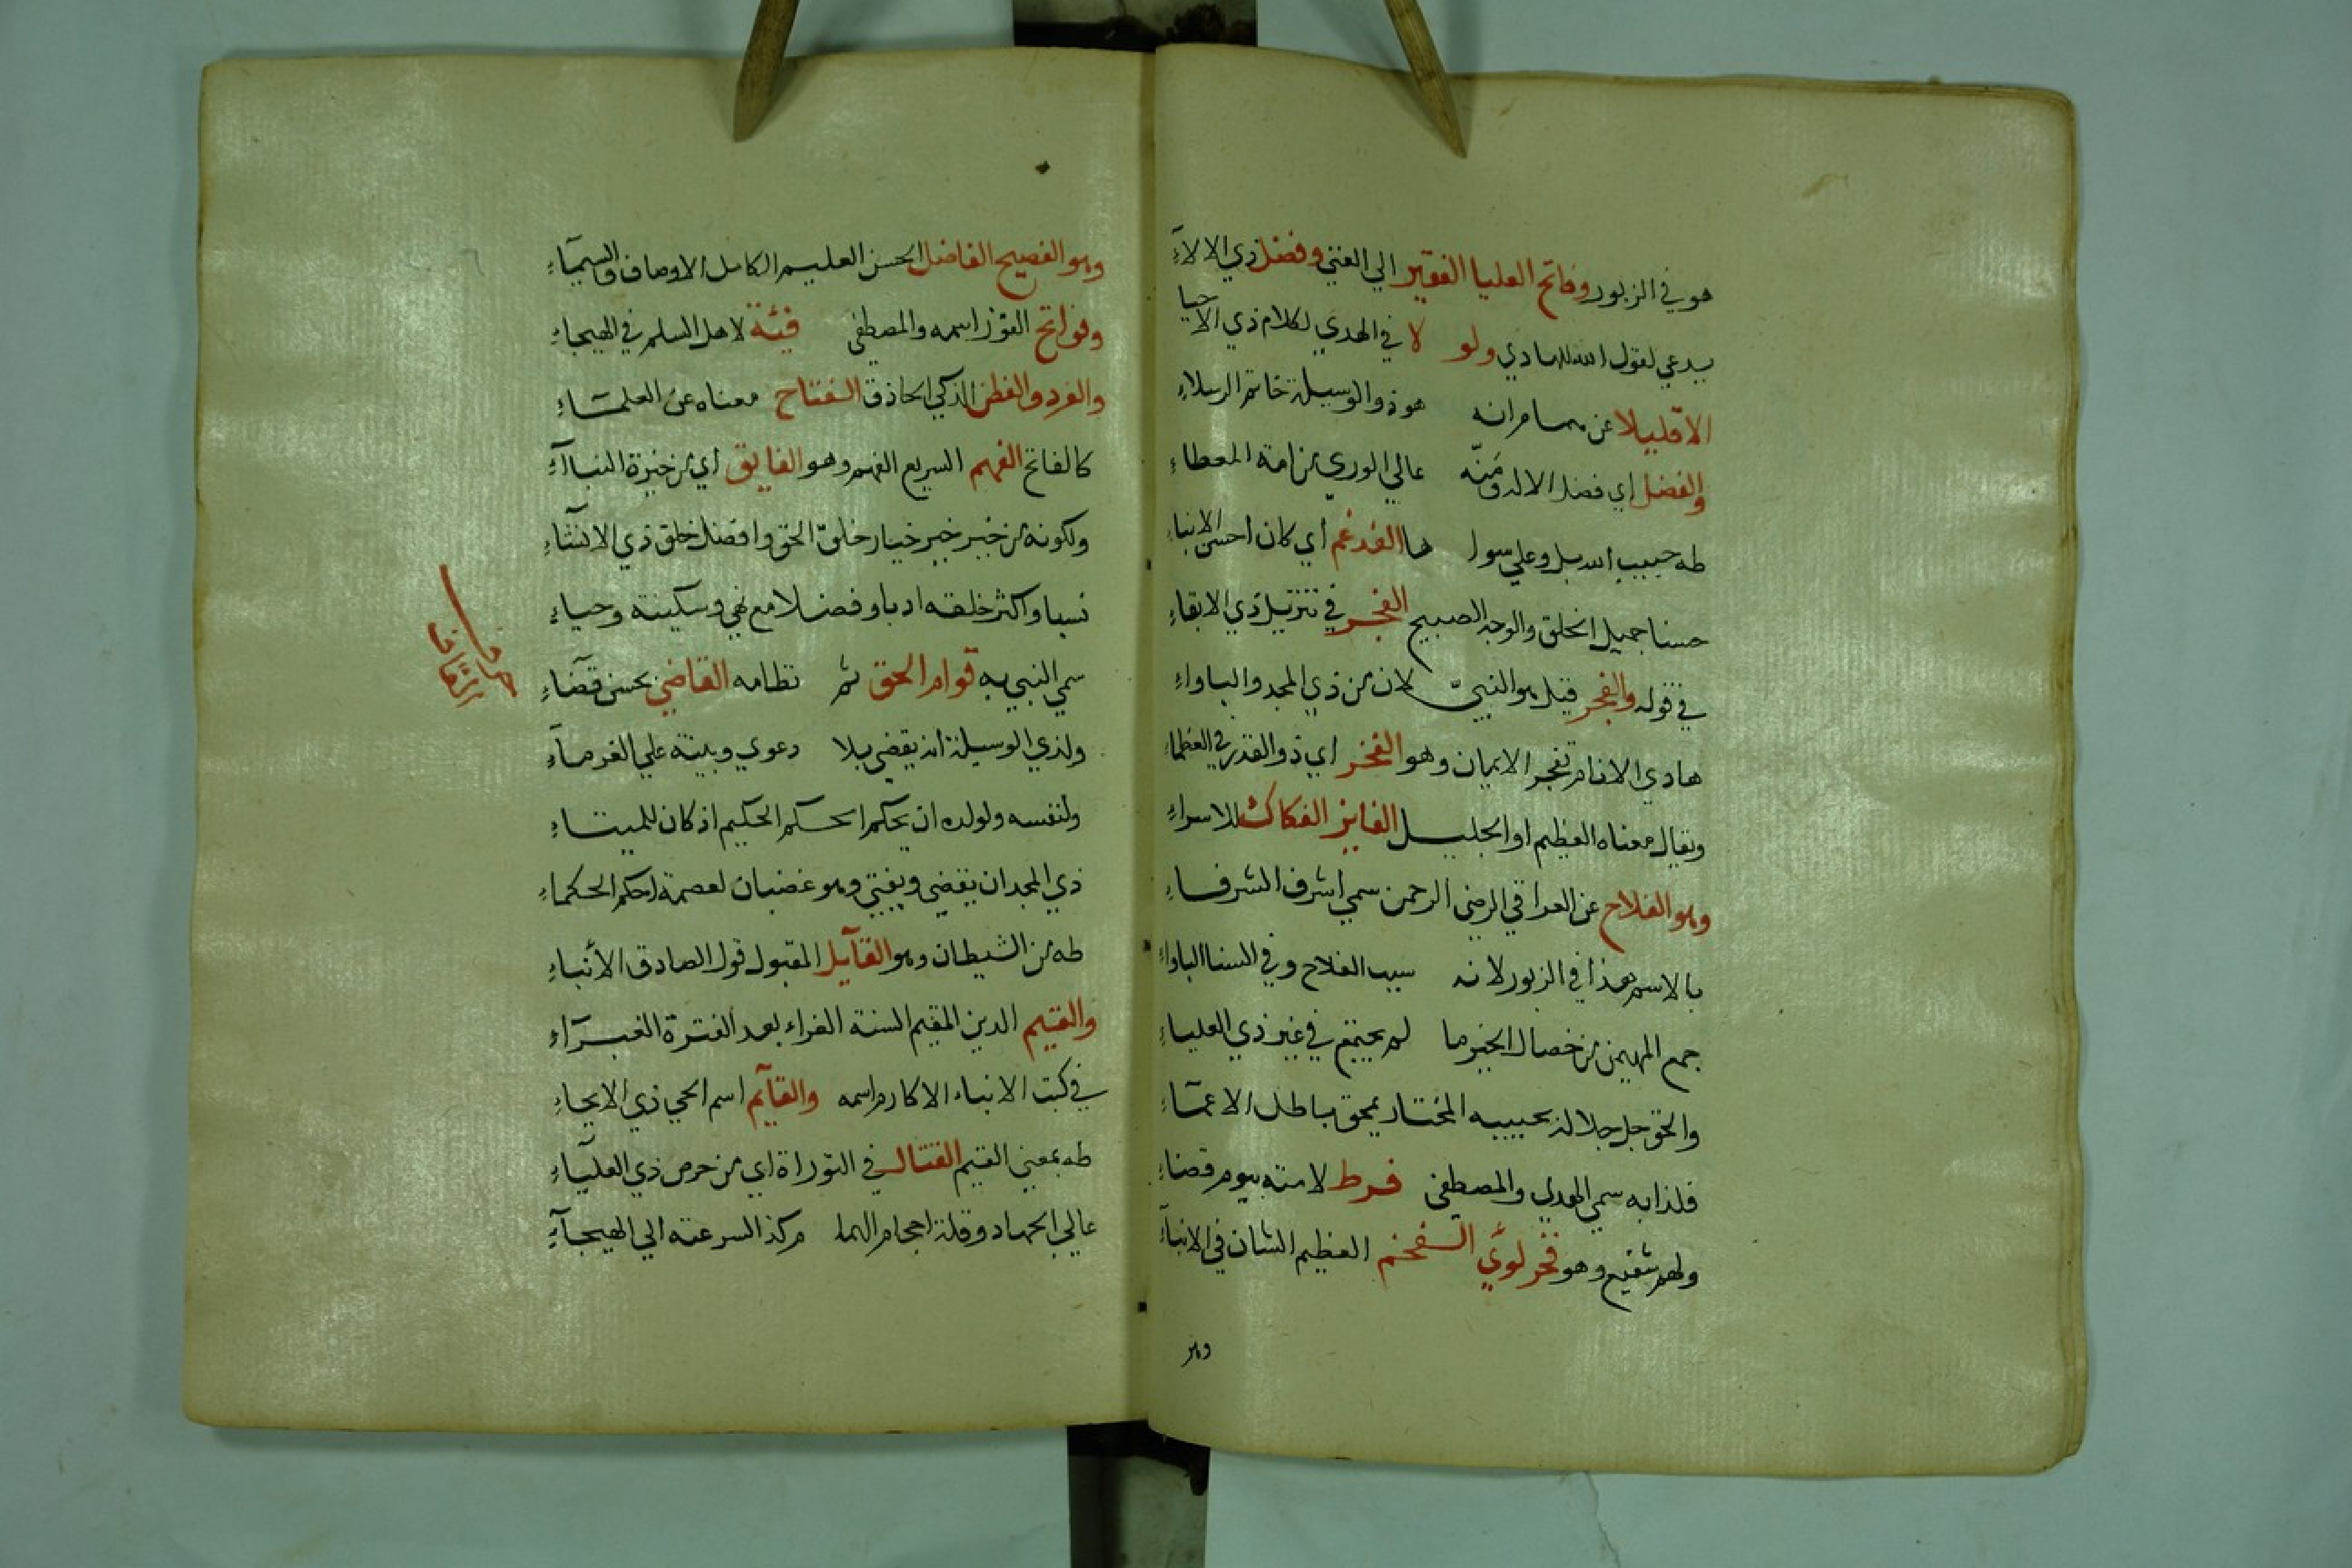 هو في الزبور وفاتح العليا الفقير الي الغني وفضل ذي الالآءِ
يدعي لقول الله للهادي ولو لا في الهدي لكلام ذي الاحيا
الاقليلا عن مسامرانه هو ذو الوسيلة خاتم الرسلاءِ
والفضل اي فضل الاله ومَنّه عالي الوري من امة المعطاءِ
طه حبيب الله بل وعلي سوا ها الفدغم أي كان احسن الانباءِ
حسنا جميل الخلق والوجه الصبيح الفجر في تنزيل ذي الابقاءِ
في قوله والفجر قيل هو النبيّ لان من ذي المجد والباواءِ
هادي الانام تفجر الايمان وهو الفخر اي ذو القدر في العظماءِ
ويقال معناه العظيم او الجليل الفايز الفكاك للاسراءِ
وهو الفلاح عن العراقي الرضي الرحمن سمي اشرف الشرفاءِ
بالاسم هذا في الزبور لانه سبب الفلاح وفي السنا الباواءِ
جمع المهيمن من خصال الخير ما لم يجتمع في غير ذي العلياءِ
والحق جل جلاله بحبيبه المختار يمحق باطل الاعمآءِ
فلذا به سمي الهدي والمصطفي فرط لامته بيوم قضاءِ
ولهم شفيع وهو فخر لوَّي الفخم العظيم الشان في الانبآءِ
وهو
وهو الفصيح الفاضل الحسن العليم الكامل الاوصاف والسيمآءِ
وفواتح النوّر اسمه والمصطفي فئة لاهل السلم في الهيجاءِ
والفرد والفطن الذكي الحاذق الفتاح معناه عن العلمآءِ
كالفاتح الفهم السريع الفهم وهو الفايق أي من خيرة النبآءِ
ولكونه من خير خير خيار خلقّ الحق وافضل خلق ذي الانشآءِ
نسبا واكثر خلقه ادبا وفضلا مع نهي وسكينة وحياءِ
سمي النبي به قوام الحق ثم نظامه القاضي بحسن قضآءِ
ولذي الوسيلة ان يقضي بلا دعوي وبينة علي الغرمآءِ
ولنفسه ولولده ان يحكم الحكم الحكيم اذ كان للميتاءِ
ذي المجد ان يقضي ويفتي وهو غضبان لعصمة احكم الحكماءِ
طه من الشيطان وهو القآيل المقبول قول الصادق الأنباءِ
والقيم الدين المقيم السنة الغراء بعد الفترة الغبرآءِ
في كتب الانباء الاكارم اسمه والقآيم اسم الحي ذي الايحاءِ
طه بمعني القيم القتال في التوراة اي من حرص ذي العليآءِ
عالي الجهاد وقلة احجام الهما م كذا لسرعته الي الهيجآءِ